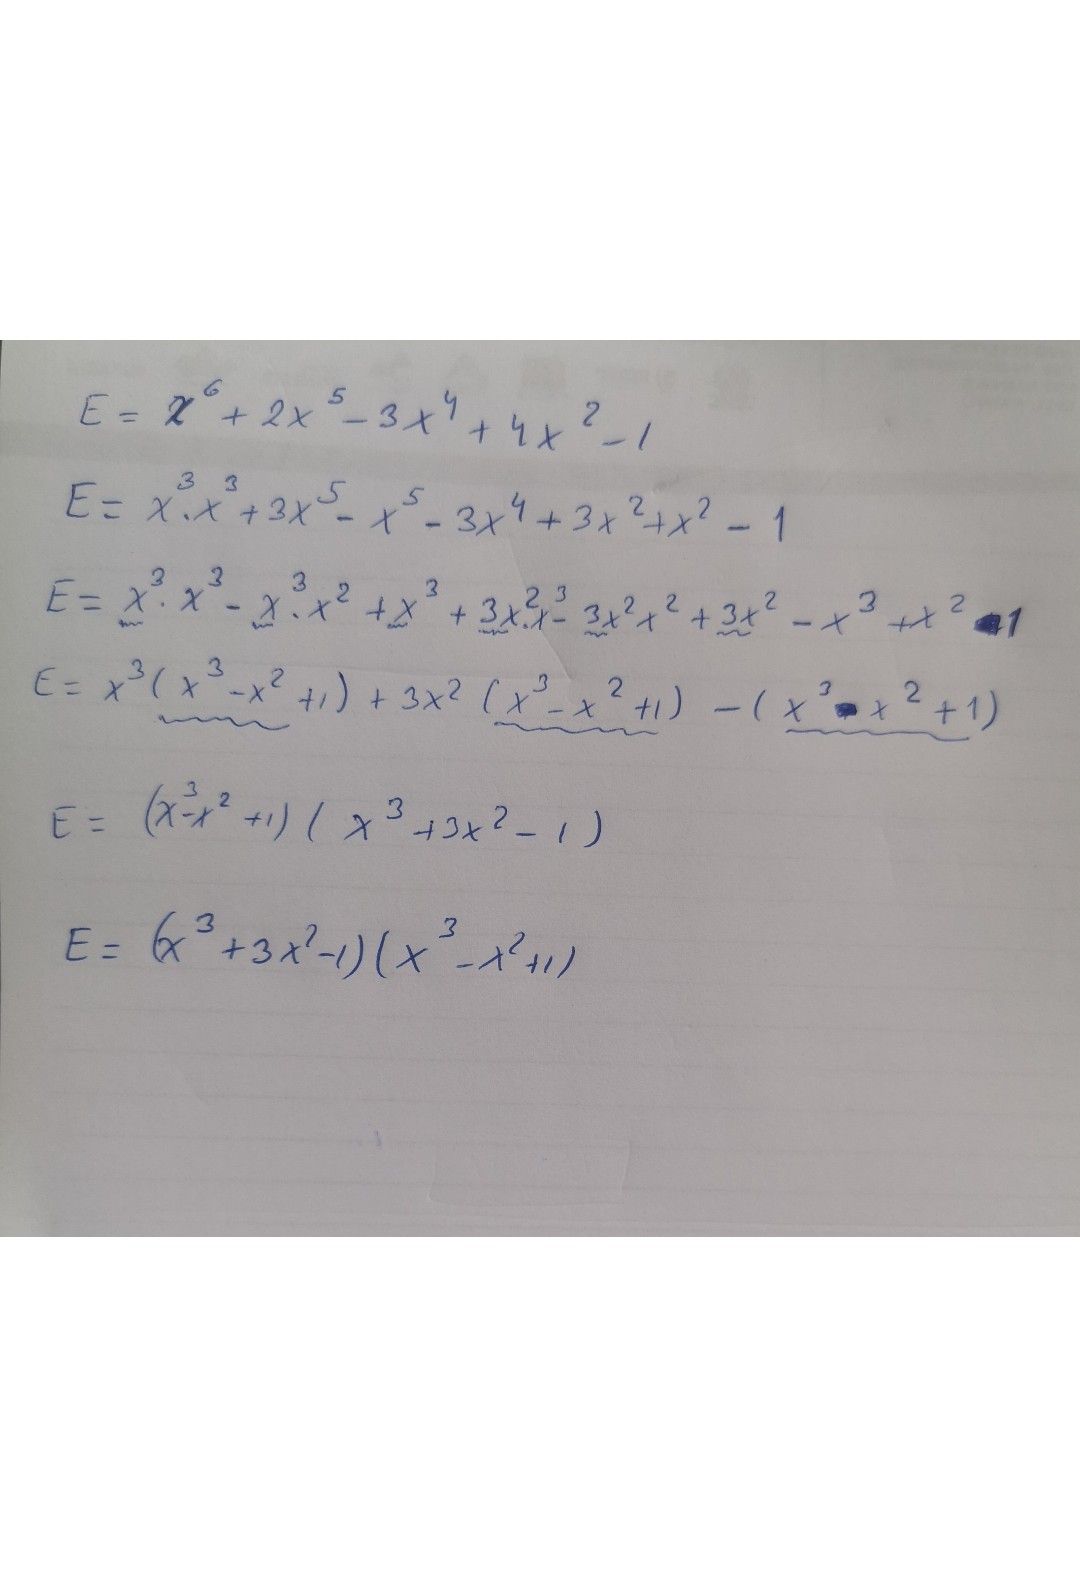 E = x⁶ + 2x⁵ - 3x⁴ + 4x² - 1
E = x³.x³ + 3x⁵ - x⁵ - 3x⁴ + 3x² + x² - 1
E = x³.x³ - x³.x² + x³ + 3x².x³ - 3x²x² + 3x² - x³ + x² - 1
E = x³(x³ - x² + 1) + 3x²(x³ - x² + 1) - (x³ - x² + 1)
E = (x³ - x² + 1)(x³ + 3x² - 1)
E = (x³ + 3x² - 1)(x³ - x² + 1)